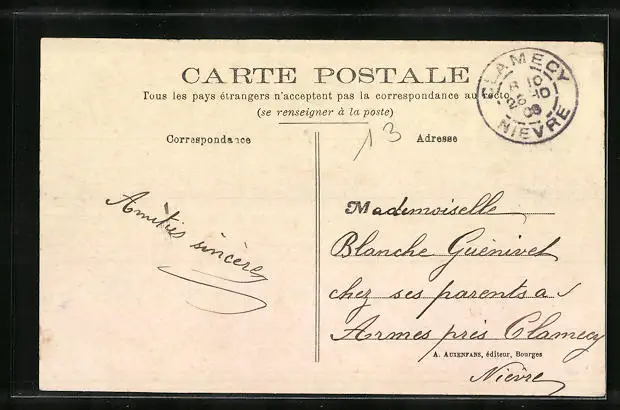 CARTE POSTALE
Tous les pays étrangers n'acceptent pas la correspondance au recto
(se renseigner à la poste)
Correspondance
Adresse
13
CLAMECY
NIEVRE
Amitiés sincères
Mademoiselle
Blanche Guénivet
chez ses parents à
Armes près Clamecy
A. AUXENFANS, éditeur, Bourges
Nièvre